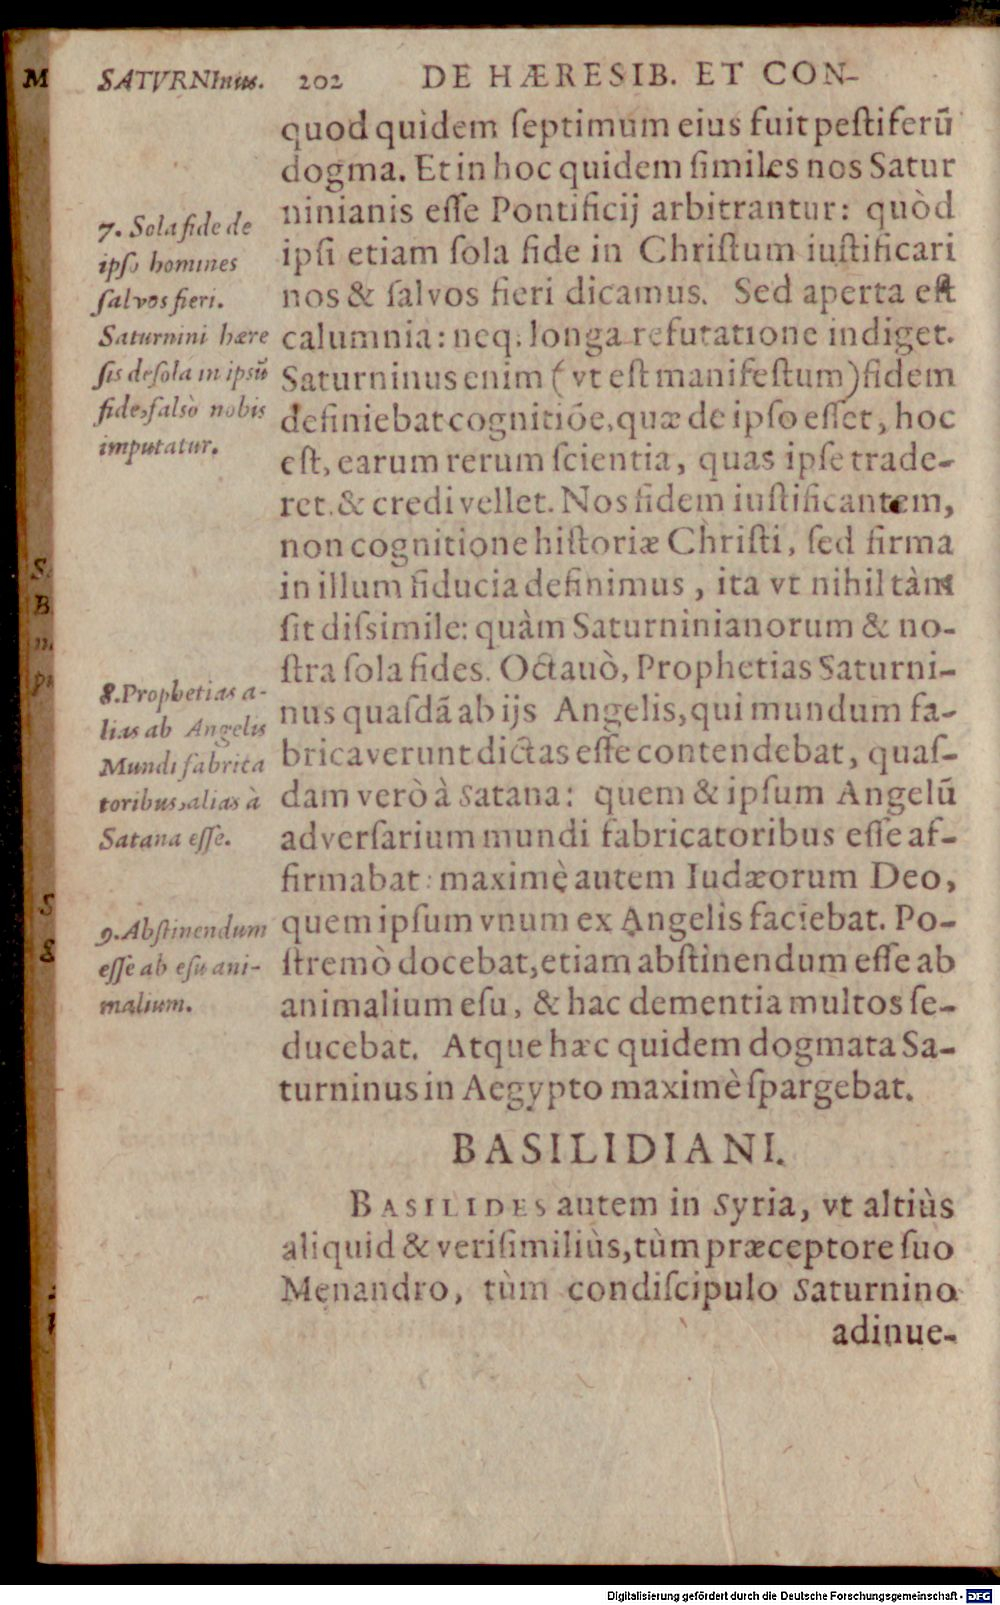 SATVRNInus. 202 DE HÆRESIB. ET CON-
quod quidem ſeptimum eius fuit peſtiferũ
dogma. Et in hoc quidem ſimiles nos Satur
ninianis eſſe Pontificij arbitrantur: quòd
ipſi etiam ſola fide in Chriſtum iuſtificari
nos & ſalvos fieri dicamus. Sed aperta eſt
calumnia: neq; longa refutatione indiget.
Saturninus enim (vt eſt manifeſtum) fidem
definiebat cognitiõe, quæ de ipſo eſſet, hoc
eſt, earum rerum ſcientia, quas ipſe trade-
ret. & credi vellet. Nos fidem iuſtificantem,
non cognitione hiſtoriæ Chriſti, ſed firma
in illum fiducia definimus, ita vt nihil tàm
ſit diſsimile: quàm Saturninianorum & no-
ſtra ſola fides. Octauò, Prophetias Saturni-
nus quaſdã ab ijs Angelis, qui mundum fa-
bricaverunt dictas eſſe contendebat, quaſ-
dam verò à Satana: quem & ipſum Angelũ
adverſarium mundi fabricatoribus eſſe af-
firmabat: maximè autem Iudæorum Deo,
quem ipſum vnum ex Angelis faciebat. Po-
ſtremò docebat, etiam abſtinendum eſſe ab
animalium eſu, & hac dementia multos ſe-
ducebat. Atque hæc quidem dogmata Sa-
turninus in Aegypto maximè ſpargebat.
7. Sola fide de
ipſo homines
ſalvos fieri.
Saturnini hære
ſis de ſola in ipsũ
fide, falsò nobis
imputatur.
8. Prophetias a-
lias ab Angelis
Mundi fabrica
toribus, alias à
Satana eſſe.
9. Abſtinendum
eſſe ab eſu ani-
malium.
BASILIDIANI.
BASILIDES autem in Syria, vt altiùs
aliquid & veriſimiliùs, tùm præceptore ſuo
Menandro, tùm condiſcipulo Saturnino
adinue-
M
S
B
n
p
S
g
Digitalisierung gefördert durch die Deutsche Forschungsgemeinschaft - DFG